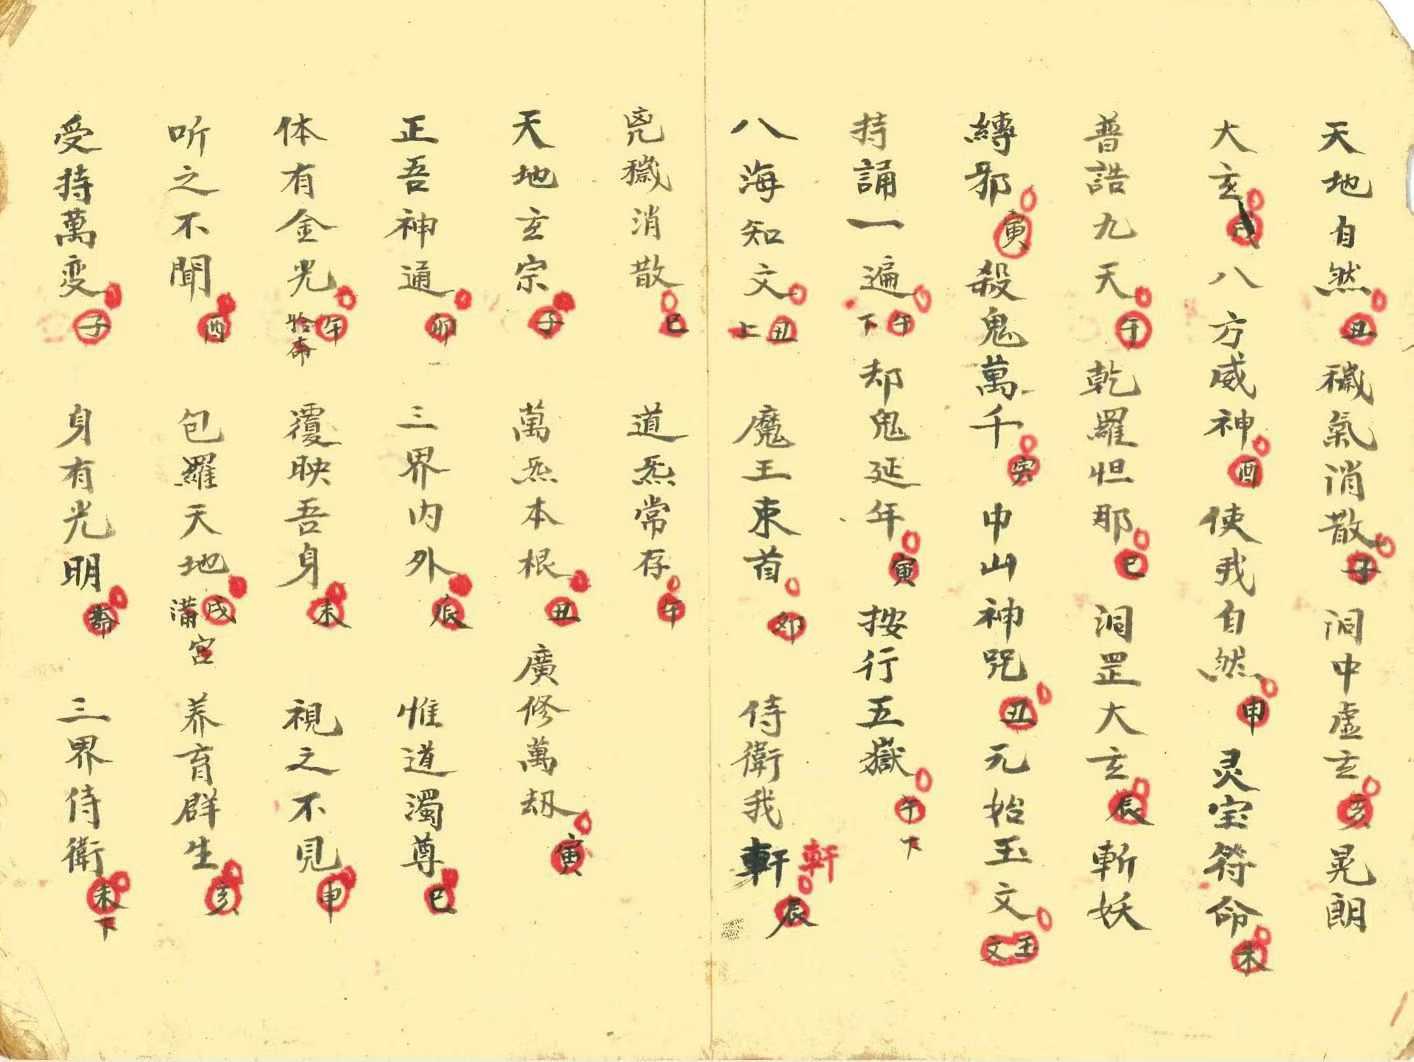 天地自然丑穢氣消散子洞中虛玄亥晃朗
大玄戌八方威神酉使我自然申灵宝符命未
普誥九天午乾羅怛那巳洞罡大玄辰斬妖
縛邪寅殺鬼萬千中山神咒丑元始玉文玉文
持誦一遍午下却鬼延年寅按行五嶽午下
八海知文丑上魔王束首卯侍衛我軒軒辰
兇穢消散巳道炁常存午
天地玄宗子萬炁本根丑廣修萬刼寅
正吾神通卯三界內外辰惟道濁尊巳
体有金光午覆映吾身未視之不見申
听之不聞酉包羅天地戌滿宮养育群生亥
受持萬变子身有光明三界侍衛未下